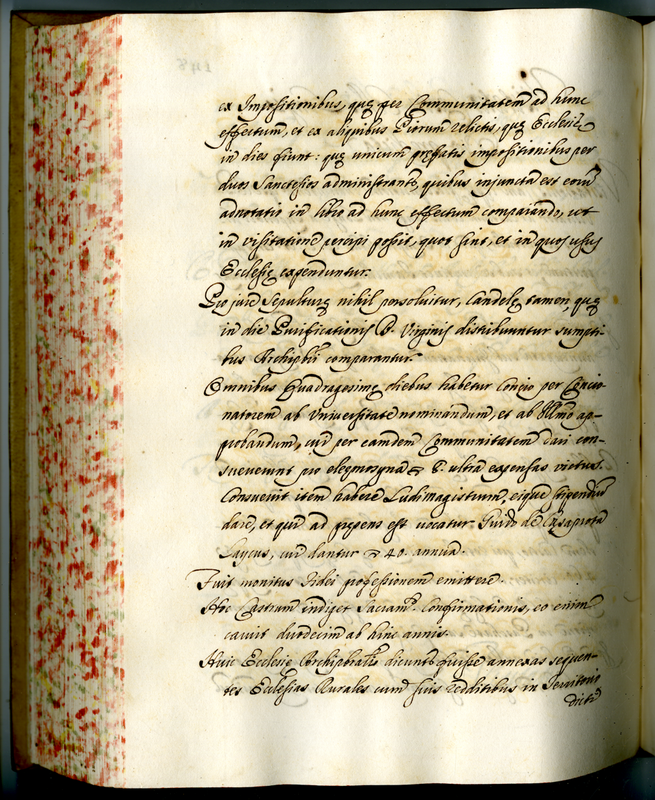 ex Impositionibus, quę per Communitatem ad hunc
effectum, et ex aliquibus Piorum relictis, quę Ecclesię
in dies fiunt: quę unicum pręfatis impositionibus per
duos Sanctesios administrantr, quibus injuncta est eorū
adnotatio in libro ad hunc effectum comparando, vt
in visitatione percipi possit, quot sint, et in quos usus
Ecclesię expenduntur.
Pro jure Sepulturę nihil persoluitur, Candelę tamen, quę
in die Purificationis B. Virginis distribuuntur sumpti-
bus Archipbri comparantur.
Omnibus Quadragesimę diebus habetur Concio per Concio-
natorem ab Vniuersitate nominandum, et ab Illmo ap-
probandum, cui per eamdem Communitatem dari con-
sueuerunt pro eleęmosyna 8. ultra expensas victus.
Consueuit item habere Ludimagistrum, eique stipendiū
dare, et qui ad pręsens est vocatur Guido de
Laycus, cui dantur 40. annua.
Fuit monitus Fidei professionem emittere.
Hoc Castrum indiget Sacram.° Confirmationis, eo enim
caruit duodecim ab hinc annis.
Huic Ecclesię Archipbrali dicuntr fuisse annexas sequen-
tes Ecclesias Rurales cum suis redditibus in Territorio
dicti